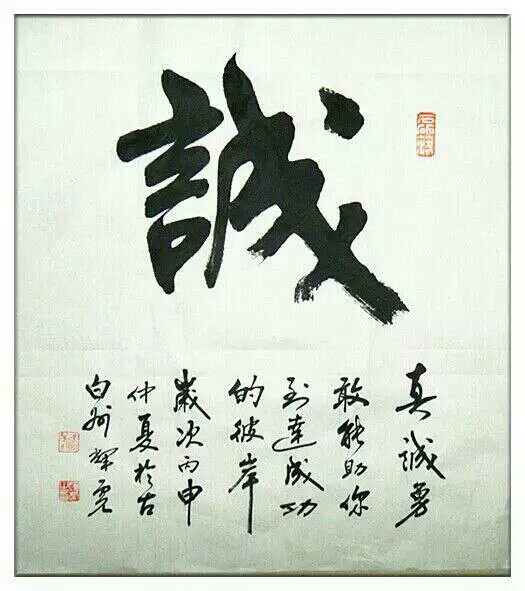 誠
真诚勇
敢能助你
到達成功
的彼岸
歲次丙申
仲夏於古
白州輝亮